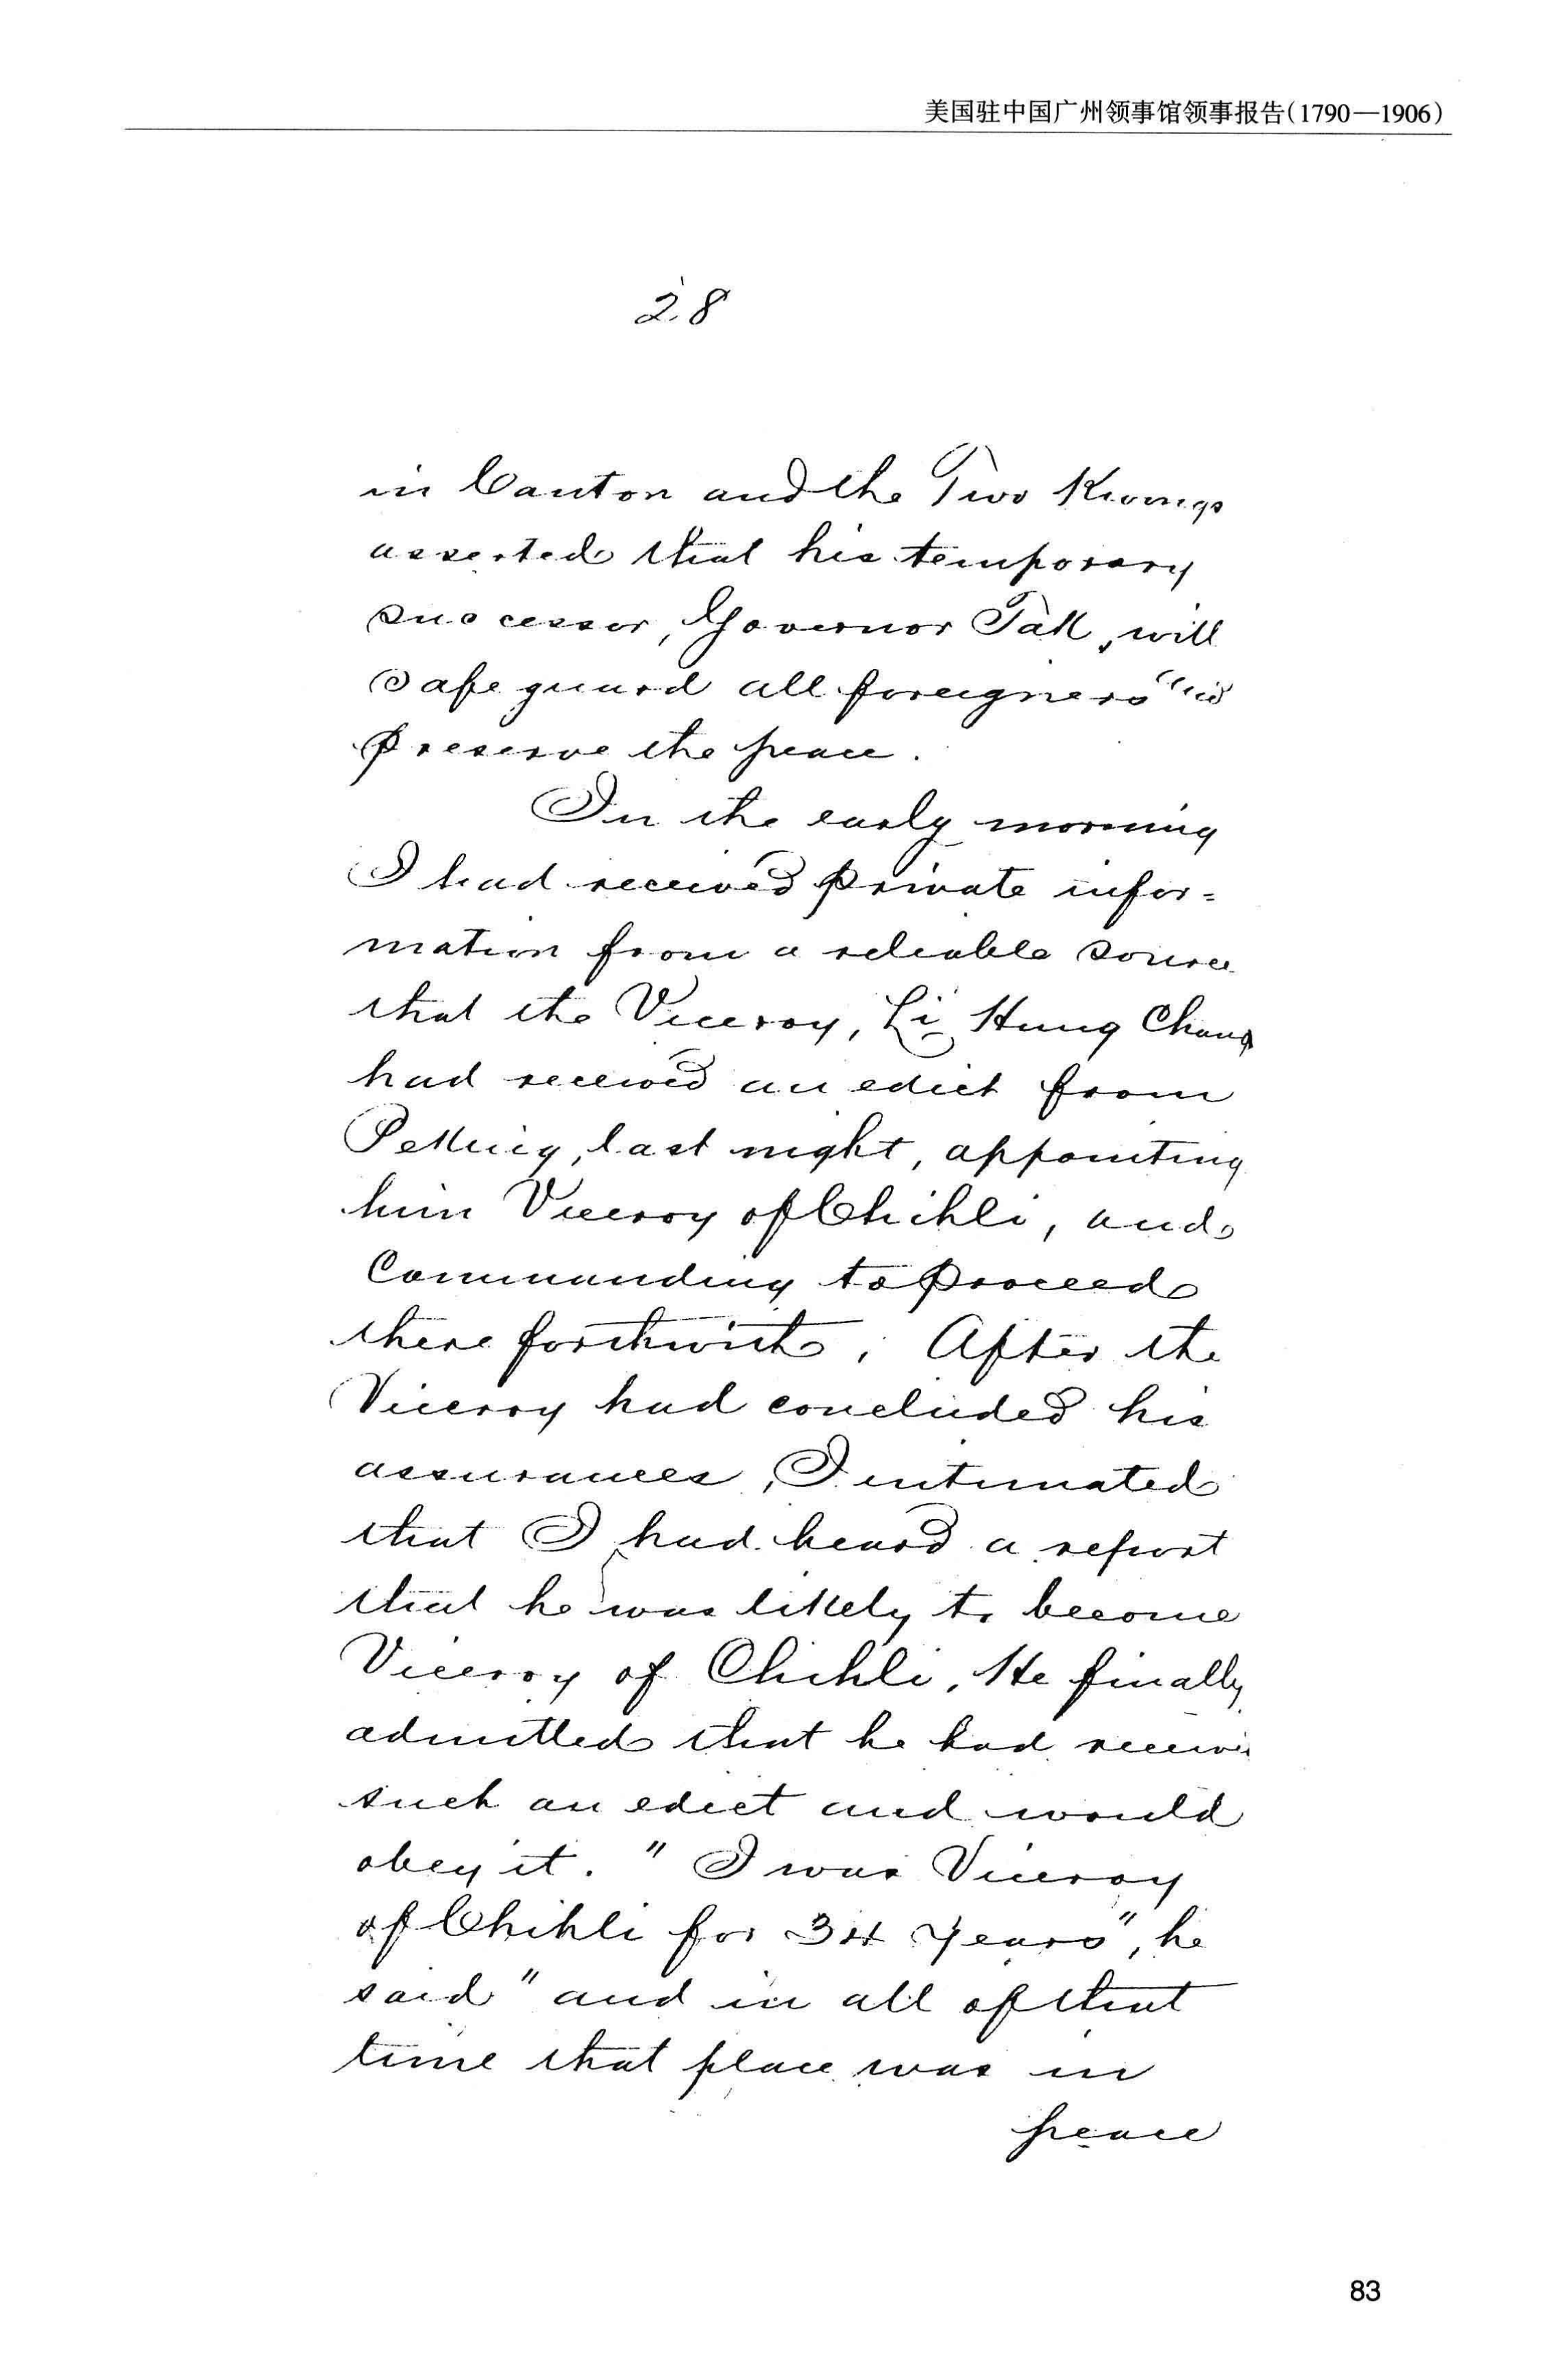 美国驻中国广州领事馆领事报告(1790—1906)
28
in Canton and the Two Kwongs
asserted that his temporary
successor, Governor Tak, will
safe guard all foreigners and
preserve the peace.
In the early morning
I had received private infor=
mation from a reliable source
that the Viceroy, Li Hung Chang
had received an edict from
Peking, last night, appointing
him Viceroy of Chihli, and
Commanding to proceed
there forthwith. After the
Viceroy had concluded his
assurances, I intimated
that I had heard a report
that he was likely to become
Viceroy of Chihli. He finally
admitted that he had receiv
such an edict and would
obey it. "I was Viceroy
of Chihli for 34 years", he
said "and in all of that
time that place was in
peace
83